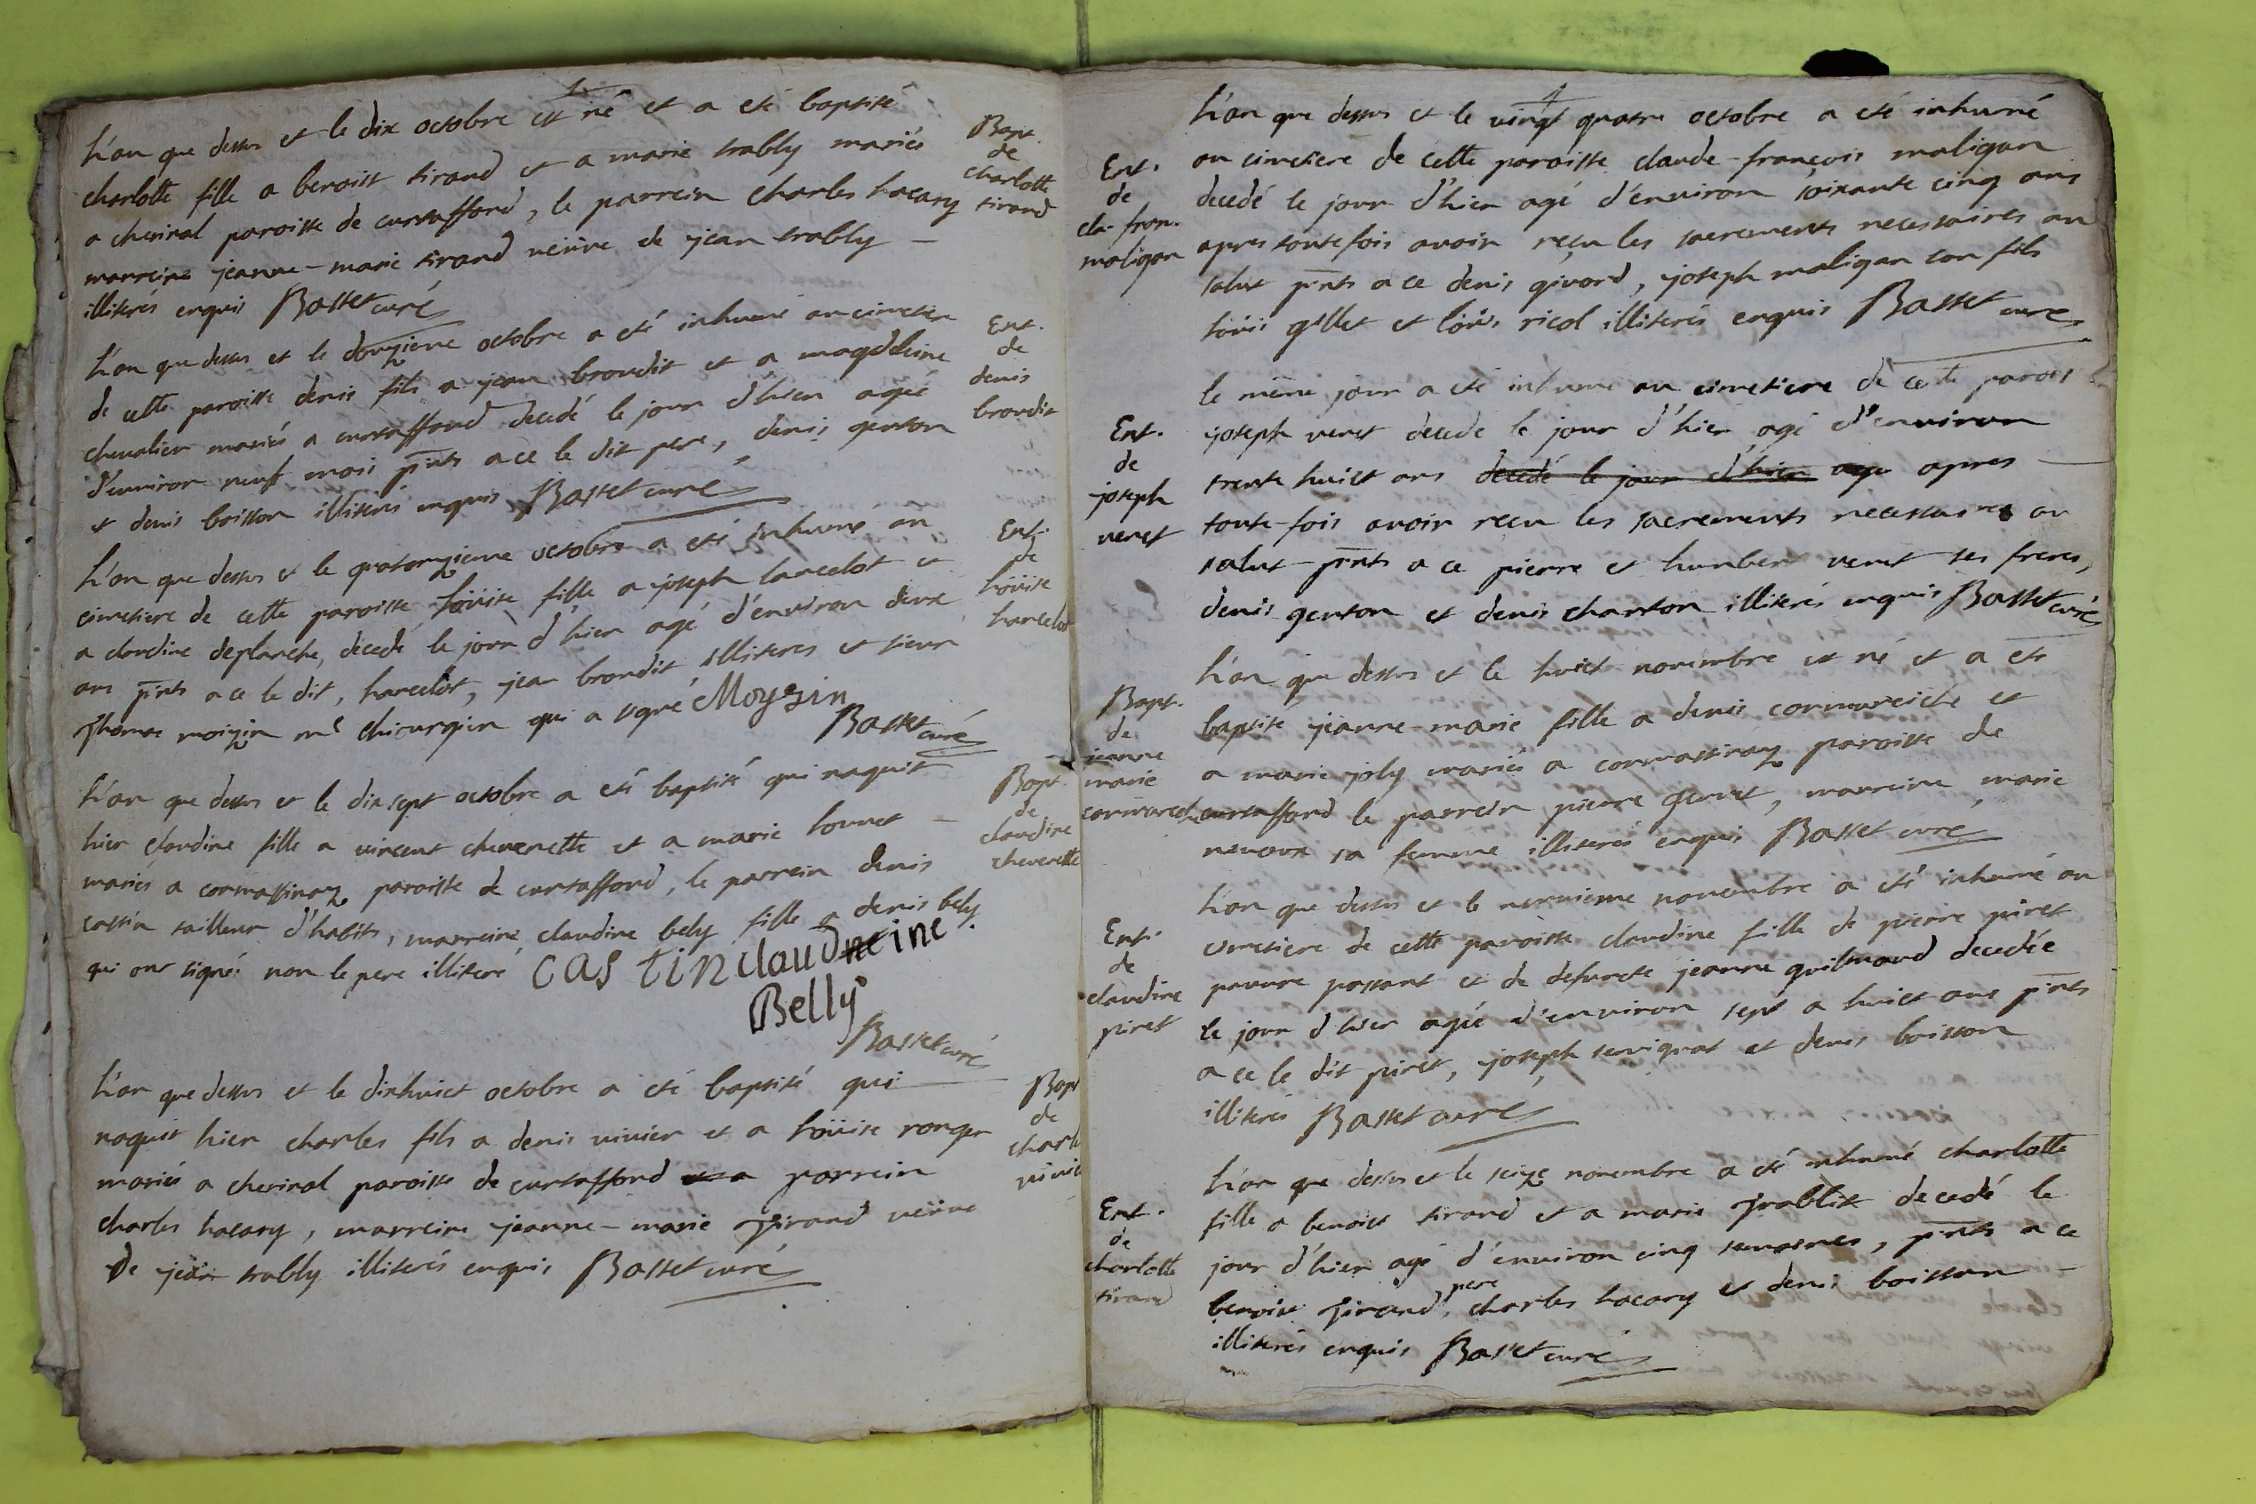 L'an que dessus et le dix octobre est né et a eté baptisé
charlotte fille a benoist tirand et a marie trably mariés
a cheviral paroisse de curtafford, le parrein charles hacary
marreine jeanne-marie tirand veüve de jean trably —
illiterés enquis Basset curé
Bapt.
de
charlotte
tirand
L'an que dessus et le douzieme octobre a eté inhumé au cimetiere
de cette paroisse denis fils a jean broudit et a magdeleine
chevalier mariés a curtaffond decedé le jour d'hier agé
d'environ neuf mois pnts a ce le dit pere, denis genton
et denis boisson illiterés enquis Basset curé
Ent.
de
denis
broudit
L'an que dessus et le quatorzieme octobre a eté inhumé au
cimetiere de cette paroisse loüise fille a joseph lancelot et
a claudine deplanche, decedé le jour d'hier agé d'environ deux
ans pnts a ce le dit, hancelot, jean broudit illiteres et sieur
Thomas moizin me chirurgien qui a signé Moyzin
Basset curé
Ent.
de
loüise
hancelot
L'an que dessus et le dixsept octobre a eté baptisé qui naquit
hier claudine fille a vincent cheverette et a marie louvet —
mariés a cormassinaz paroisse de curtaffond, le parrein denis
castin tailleur d'habits, marreine claudine bely fille a denis bely.
qui ont signés non le pere illiteré CAS TIN claudneine
Belly
Basset curé
Bapt.
de
claudine
cheverette
L'an que dessus et le dixhuict octobre a eté baptisé qui
naquit hier charles fils a denis vivier et a loüise ronger
mariés a cheviral paroisse de curtaffond et a parrein
charles hacary, marreine jeanne-marie Tirand veüve
de jean trably illiterés enquis Basset curé
Bapt
de
charle
vivie
L'an que dessus et le vingt quatre octobre a eté inhumé
au cimetiere de cette paroisse claude-françois maligan
decedé le jour d'hier agé d'environ soixante cinq ans
apres toutefois avoir reçu les sacrements necessaires au
salut pnts a ce denis givord, joseph maligan son fils
loüis gillet et loüis ricol illiterés enquis Basset curé
Ent.
de
cla-fran.
maligan
le même jour a eté inhumé au cimetiere de cette parois
joseph veret decede le jour d'hier agé d'environ
trente huict ans decedé le jour d'hier age apres —
toute-fois avoir reçu les sacrements necessaires au
salut pnts a ce pierre et humbert veret ses freres,
denis genton et denis charton illiterés enquis Basset curé
Ent.
de
joseph
veret
L'an que dessus et le huict novembre est né et a eté
baptisé jeanne-marie fille a denis cormareiche et
a marie joly mariés a cormassinaz paroisse de
curtaffond le parrein pierre genet, marreine marie
neveux sa femme illiterés enquis Basset curé
Bapt.
de
jeanne
marie
cormarech
L'an que dessus et le neuvieme novembre a eté inhumé au
cimetiere de cette paroisse claudine fille de pierre piret
pauvre passant et de defuncte jeanne guilmaud decedée
le jour d'hier agée d'environ sept a huict ans pnts
a ce le dit piret, joseph sevignat et denis boisson
illiterés Basset curé
Ent.
de
claudine
piret
L'an que dessus et le seize novembre a eté inhumé charlotte
fille a benoist tirand et a marie Trablit decedé le
jour d'hier agé d'environ cinq semaines, pnts a ce
benoist Tirand pere, charles hacary et denis boisson —
illiterés enquis Basset curé
Ent.
de
charlotte
tirand